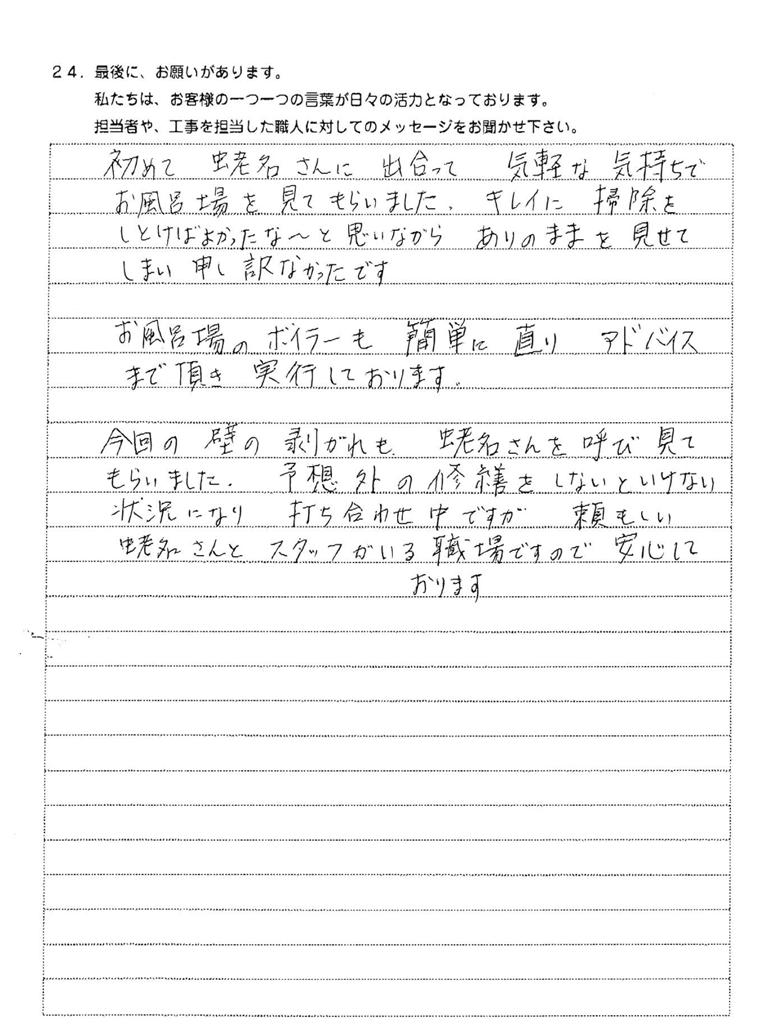 24．最後に、お願いがあります。
私たちは、お客様の一つ一つの言葉が日々の活力となっております。
担当者や、工事を担当した職人に対してのメッセージをお聞かせ下さい。
初めて 蛯名さんに 出合って 気軽な 気持ちで
お風呂場を 見て もらいました. キレイに 掃除を
しとけばよかったな〜と 思いながら ありのままを 見せて
しまい 申し訳なかったです
お風呂場の ボイラーも 簡単に 直り アドバイス
まで 頂き 実行しております.
今回の 壁の 剥がれも. 蛯名さんを 呼び 見て
もらいました. 予想外の 修繕を しないといけない
状況になり 打ち合わせ中ですが 頼もしい
蛯名さんと スタッフがいる 職場ですので 安心して
おります